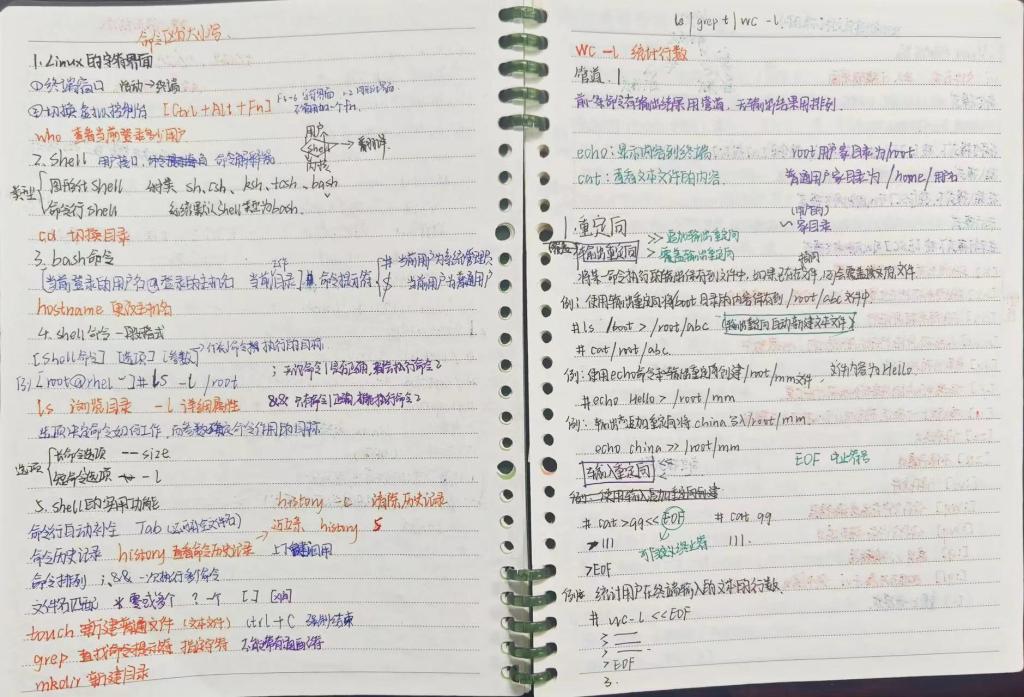 命令区分大小写.
1. Linux的字符界面
①终端窗口 活动→终端
②切换虚拟控制台 [Ctrl+Alt+Fn]
who 查看当前登录的用户
2. Shell 用户接口, 命令解释器
用户
shell → 翻译
内核
类型
用户的什shell 种类 sh, csh, ksh, tcsh, bash
命令行shell 红帽默认shell类型为bash.
cd 切换目录
3. bash命令
[当前登录的用户名@登录的主机名 当前目录] 命令提示符
工作
# 当前用户为系统管理员
$ 当前用户为普通用户
hostname 更改主机名
4. shell命令一般格式
[Shell命令] [选项] [参数] → 什么命令执行的目标
例 [root@rhel ~]# ls -l /root
; 无论命令1是否正确,都会执行命令2
ls 浏览目录 -l 详细属性
&& 只有命令1正确,才能执行命令2
选项决定命令如何工作,而参数确定命令作用的目标
选项
长命令选项 --size
短命令选项 -l
5. shell的实用功能
history -c 清除历史记录
命令行自动补全 Tab (必须补全文件名)
近五条 history 5
命令历史记录 history 查看命令历史记录 → 上下键调用
命令排列 ; && 一次执行多个命令
文件名匹配 * 零或多个 ? 一个 [ ] 区间
touch 新建普通文件 (文本文件) ctrl+C 强制结束
grep 查找命令提示符 指定字符
mkdir 新建目录
ls | grep t | wc -l.
wc -l 统计行数
管道. |
前一条命令有输出结果用管道,无输出结果用排列.
echo: 显示内容到终端
root用户家目录为/root
cat: 查看文本文件的内容.
普通用户家目录为 /home/用户名
(用户的)
~ 家目录
1. 重定向
输出重定向
>> 追加输出重定向
> 覆盖输出重定向
将某一命令执行的输出保存到文件中,如果已存在文件,则会覆盖该文件.
例: 使用输出重定向将boot目录的内容保存到/root/abc文件中.
# ls /boot > /root/abc (输出重定向自动新建文本文件)
# cat /root/abc.
例: 使用echo命令和输出重定向创建/root/mm文件, 文件内容为Hello
# echo Hello > /root/mm
例: 输出追加重定向将china写入/root/mm.
echo china >> /root/mm
EOF 中止符号
输入重定向
例: 使用输入追加重定向创建
# cat >qq<<EOF # cat qq
>111 111.
可自定义终止符
>EOF
例: 统计用户在终端输入的文本的行数.
# wc -l <<EOF
>
>
>EOF
3.